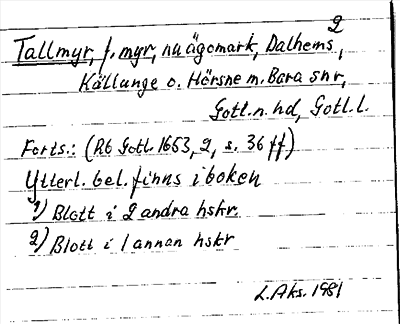 2
Tallmyr, f. myr, nu ägomark, Dalhems,
Källunge o. Hörsne m. Bara snr,
Gotl. n. hd, Gotl. l.
Forts.: (Rb Gotl. 1653, 2, s. 36 ff)
Ytterl. bel. finns i boken
1) Blott i 2 andra hskr.
2) Blott i 1 annan hskr
L. Aks. 1981